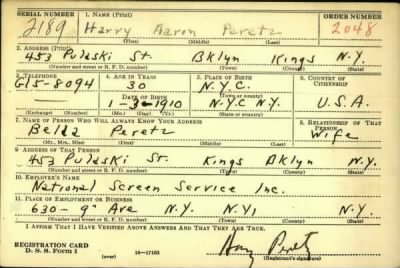 SERIAL NUMBER 1. NAME (Print) ORDER NUMBER
2189 Harry Aaron Peretz 2048
(First) (Middle) (Last)
2. ADDRESS (Print)
453 Pulaski St. Bklyn Kings N.Y.
(Number and street or R. F. D. number) (Town) (County) (State)
3. TELEPHONE 4. AGE IN YEARS 5. PLACE OF BIRTH 6. COUNTRY OF CITIZENSHIP
Gl5-8094 30 N.Y.C.
DATE OF BIRTH (Town or county)
— 1-3-1910 N.Y.C N.Y. U.S.A.
(Exchange) (Number) (Mo.) (Day) (Yr.) (State or country)
7. NAME OF PERSON WHO WILL ALWAYS KNOW YOUR ADDRESS 8. RELATIONSHIP OF THAT PERSON
Belda Peretz Wife
(Mr., Mrs., Miss) (First) (Middle) (Last)
9. ADDRESS OF THAT PERSON
453 Pulaski St. Kings Bklyn N.Y.
(Number and street or R. F. D. number) (Town) (County) (State)
10. EMPLOYER'S NAME
National Screen Service Inc.
11. PLACE OF EMPLOYMENT OR BUSINESS
630-9" Ave N.Y. N.Y. N.Y.
(Number and street or R. F. D. number) (Town) (County) (State)
I AFFIRM THAT I HAVE VERIFIED ABOVE ANSWERS AND THAT THEY ARE TRUE.
REGISTRATION CARD
D. S. S. Form 1 (over) 16—17105 Harry Peretz
(Registrant's signature)